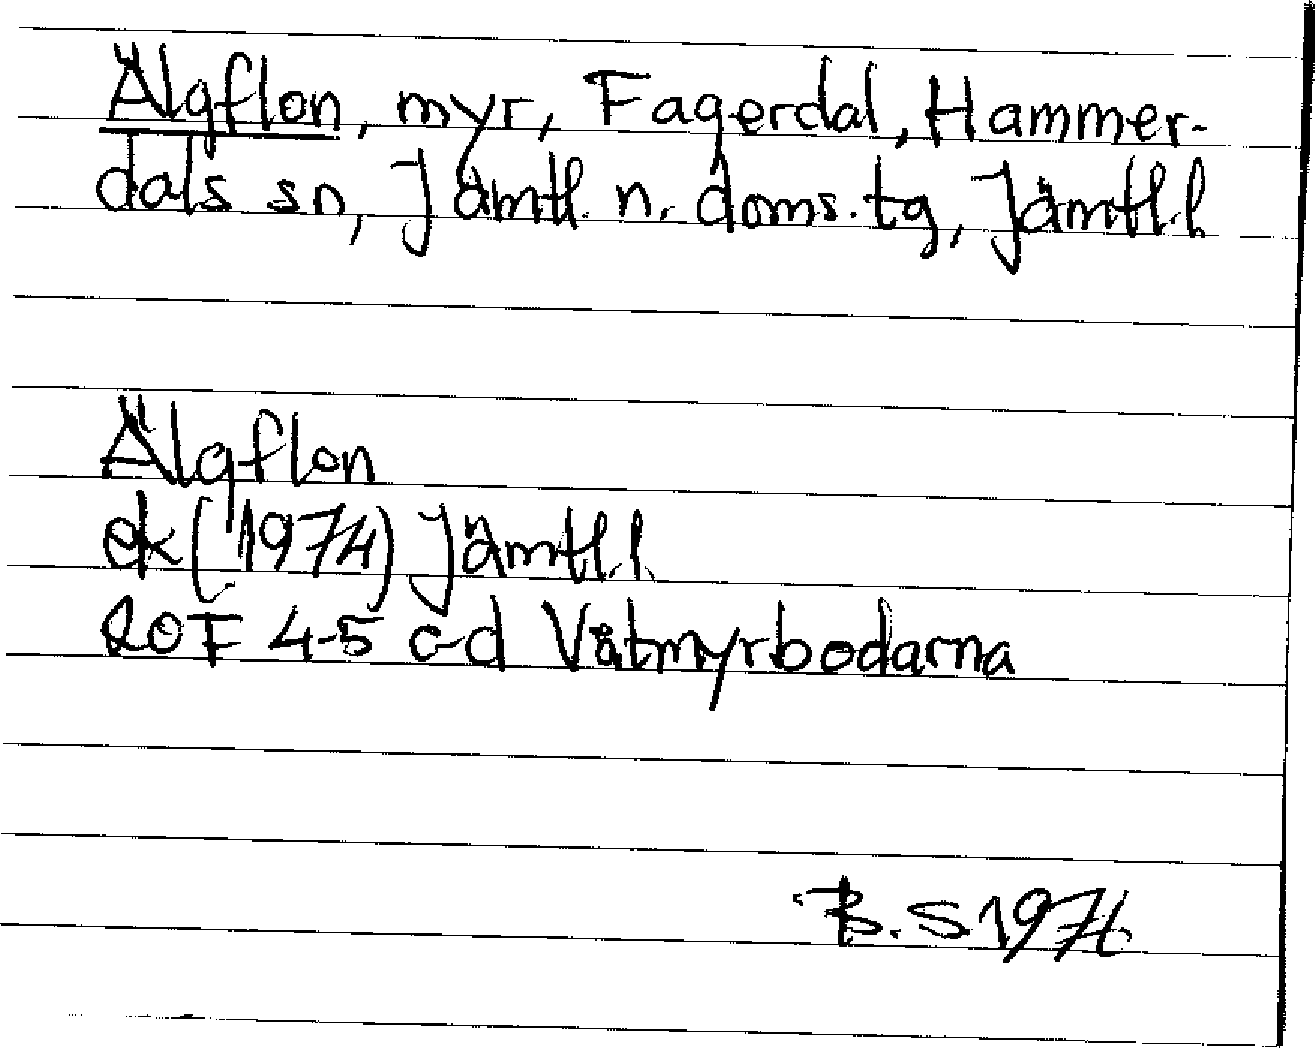 Älgflon, myr, Fagerdal, Hammer-
dals sn, Jämtl. n. doms. tg, Jämtl. l
Älgflon
ek (1974) Jämtl. l.
20F 4-5 c-d Våtmyrbodarna
B. S 1976